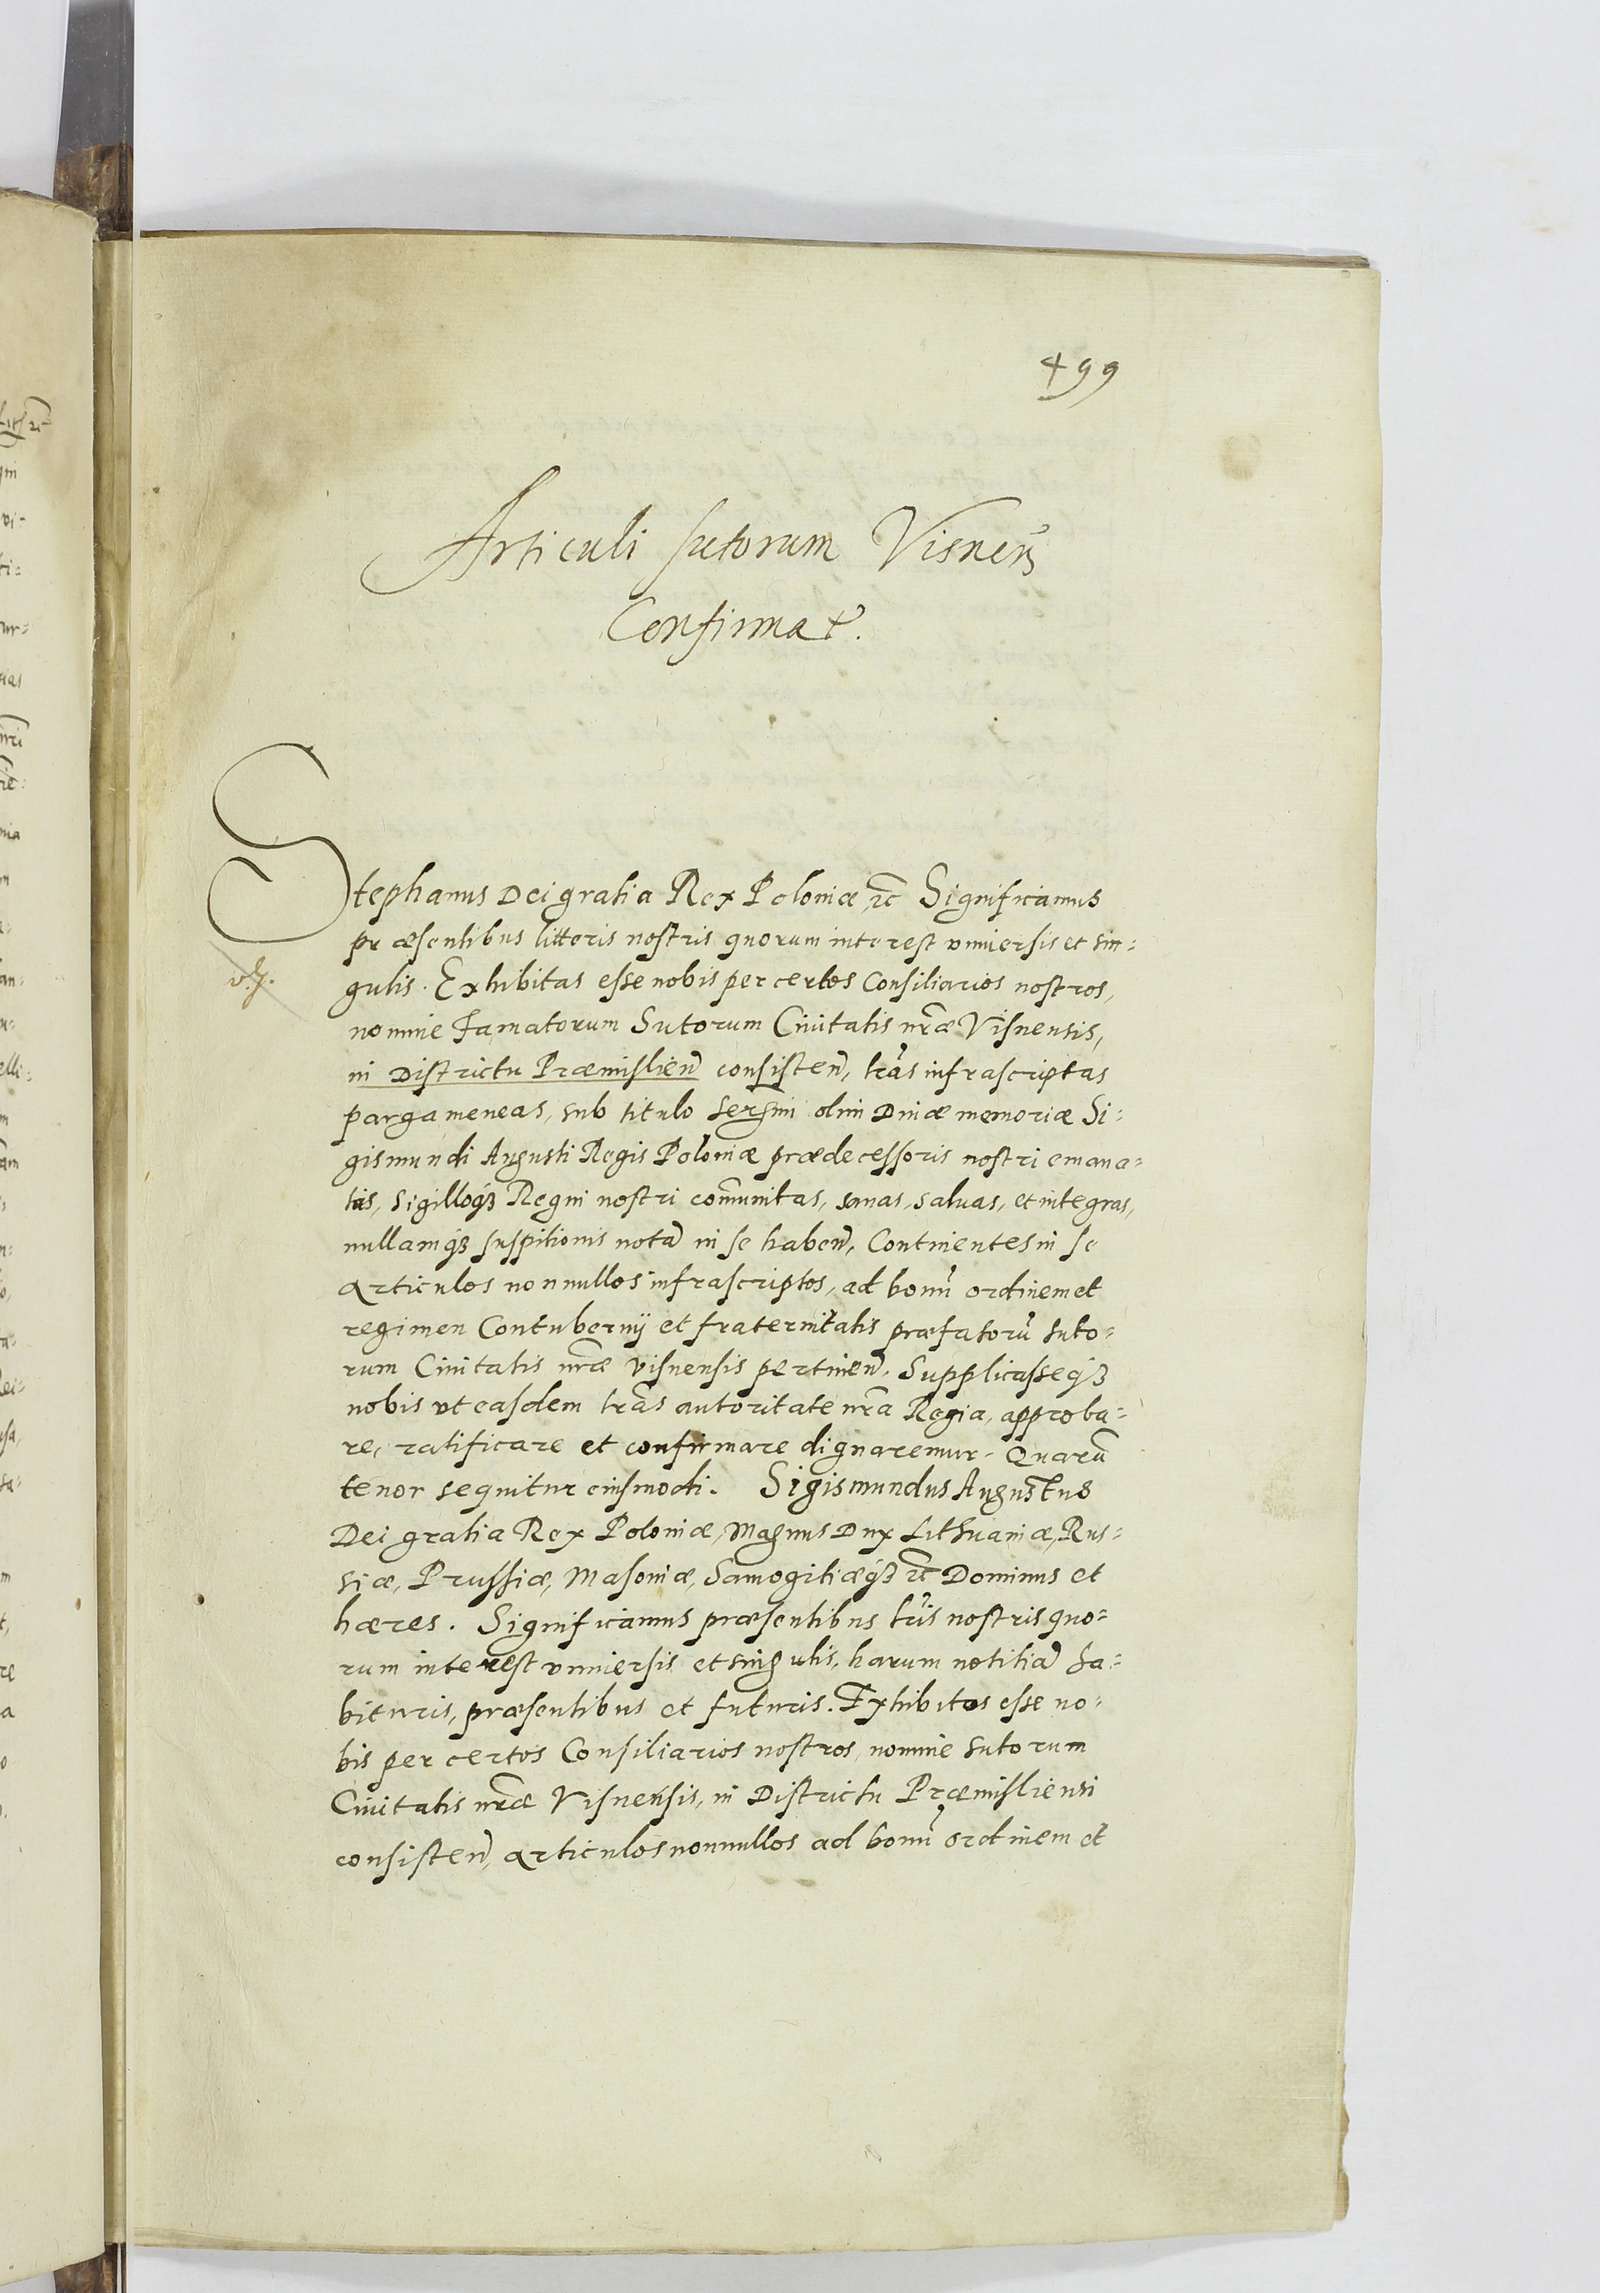 499
Articuli sutorum Visneñ
Confirmat.
Stephanus Dei gratia Rex Poloniæ etc Significamus
præsentibus litteris nostris quorum interest vniuersis et sin=
gulis. Exhibitas esse nobis per certos Consiliarios nostros,
nomine Famatorum Sutorum Ciuitatis nr̃æ Visnensis,
in Districtu Præmislieñ consisteñ, lr̃as infrascriptas
pargameneas, sub titulo serm̃i olim Diuæ memoriæ Si=
gismundi Augusti Regis Poloniæ prædecessoris nostri emana=
tas, sigilloq3 Regni nostri com̃unitas, sanas, saluas, et integras,
nullamq3 suspitionis notã in se habeñ, Continentes in se
articulos nonnullos infrascriptos, ad bonũ ordinem et
regimen Contubernij et fraternitatis præfatorũ suto=
rum Ciuitatis nr̃æ visnensis pertineñ. Supplicasseq3
nobis vt easdem lr̃as autoritate nr̃a Regia, approba=
re, ratificare et confirmare dignaremur. Quarũ
tenor sequitur eiusmodi. Sigismundus Augustus
Dei gratia Rex Poloniæ, Magnus Dux Lithuaniæ, Rus=
siæ, Prussiæ, Masouiæ, Samogitiæq3 etc Dominus et
hæres. Significamus præsentibus lr̃is nostris quo=
rum interest vniuersis et singulis, harum notitiã ha=
bituris, præsentibus et futuris. Exhibitos esse no=
bis per certos Consiliarios nostros, nomine sutorum
Ciuitatis nr̃æ Visnensis, in Districtu Præmisliensi
consisteñ, articulos nonnullos ad bonũ ordinem et